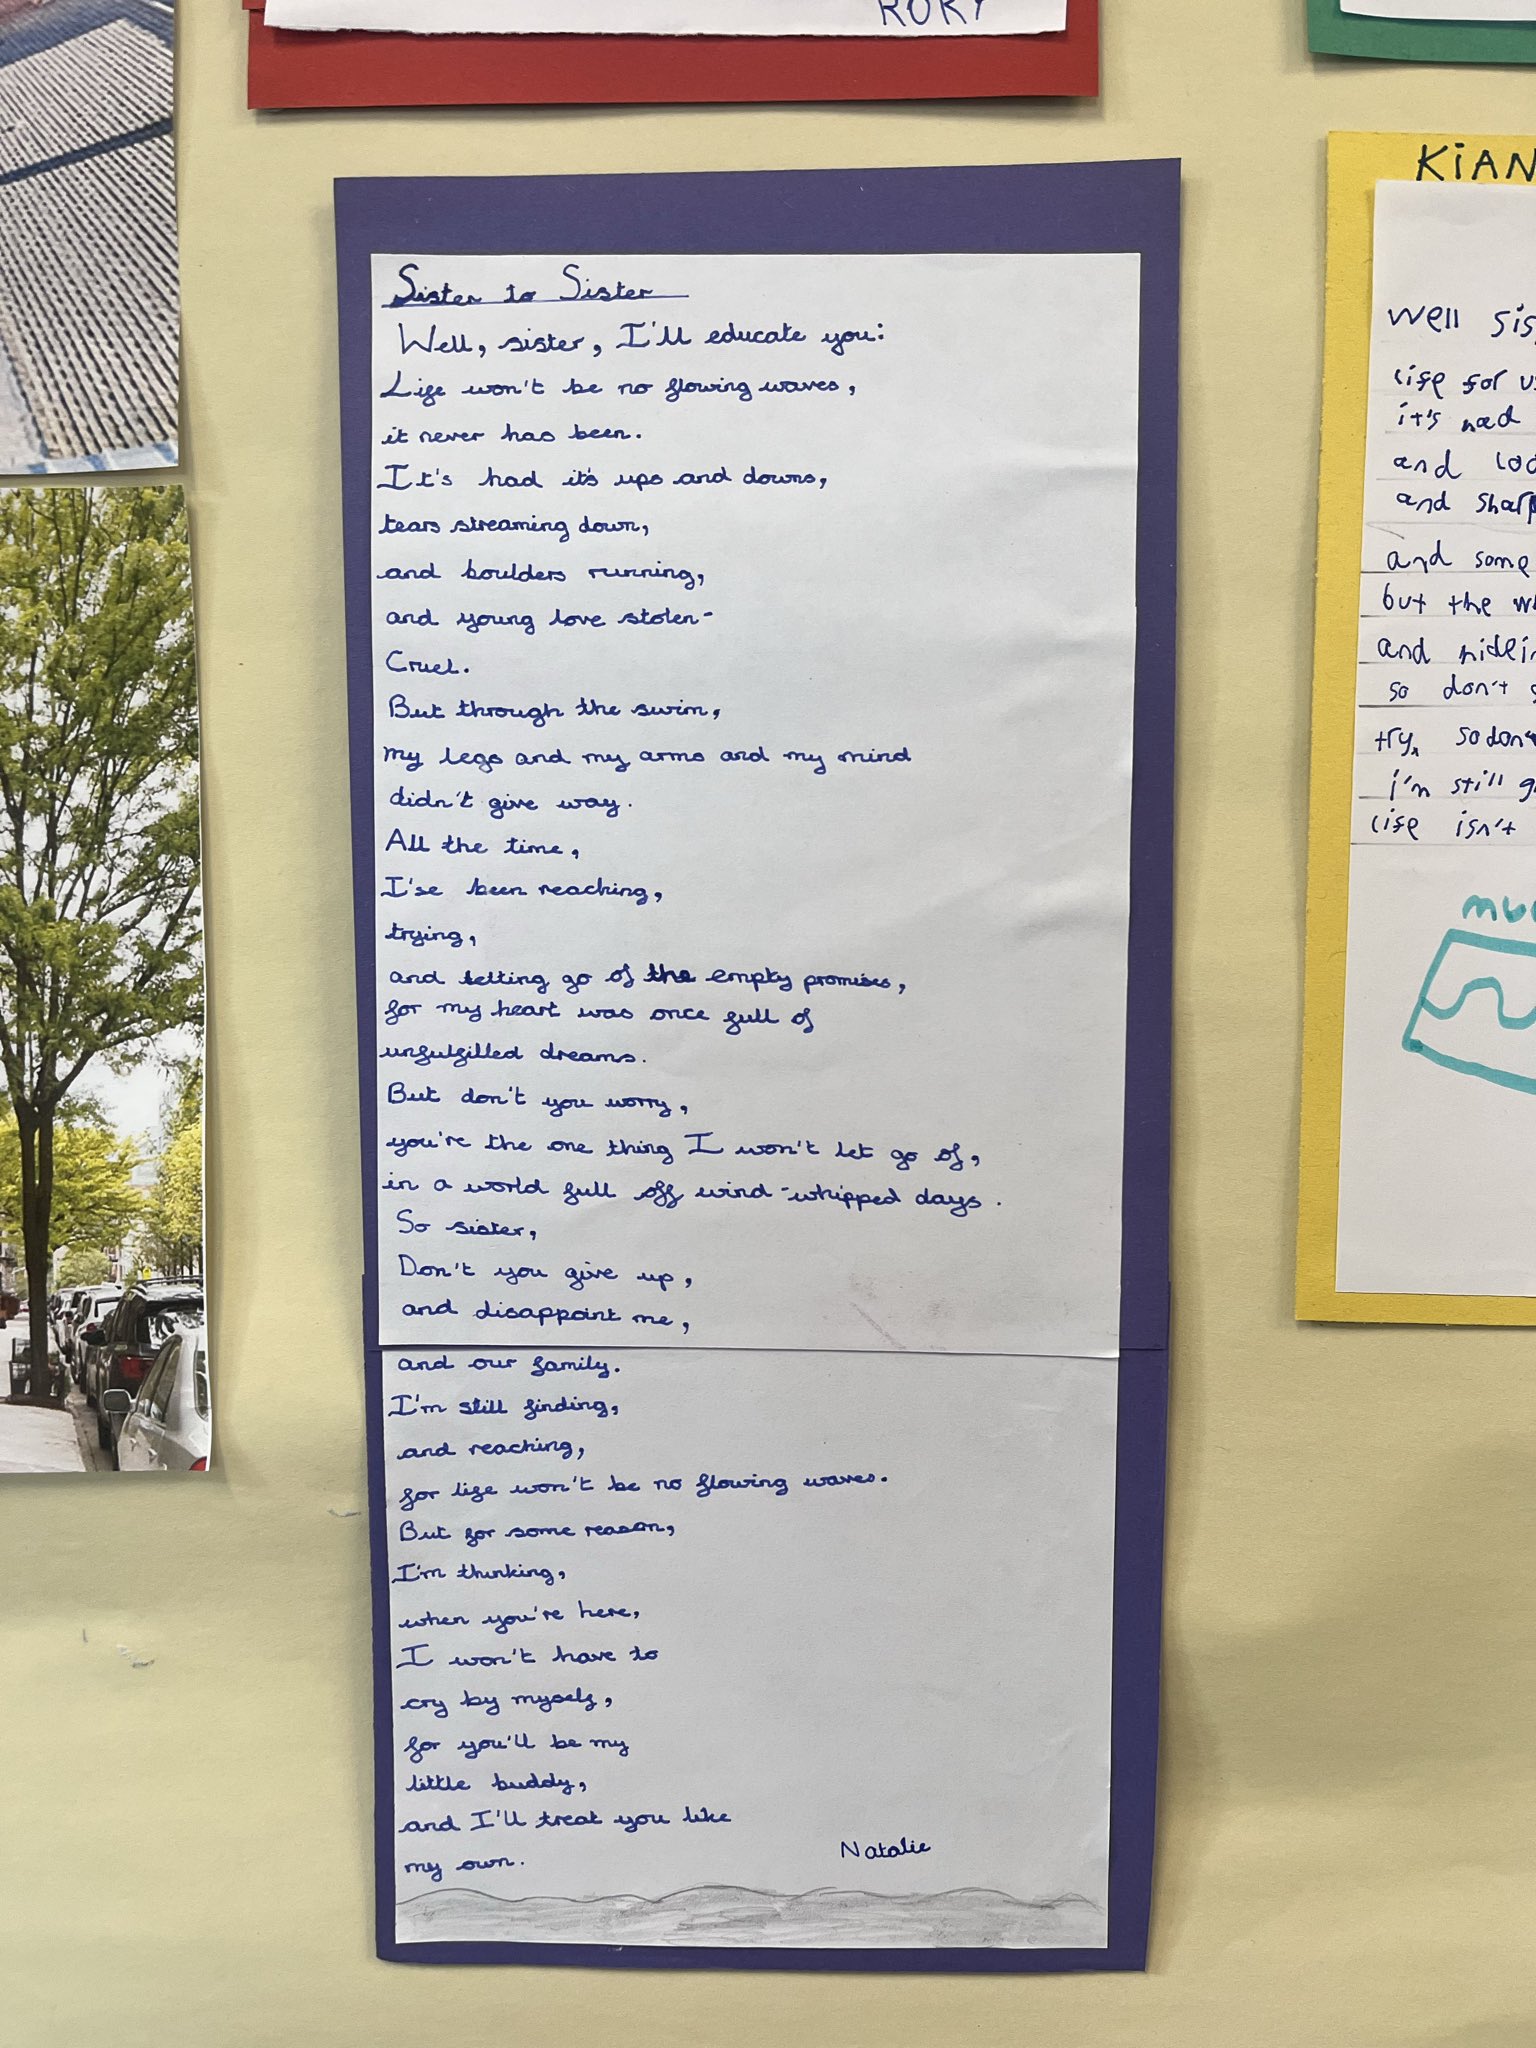 RORY
Sister to Sister
Well, sister, I'll educate you:
Life won't be no flowing waves,
it never has been.
It's had it's ups and downs,
tears streaming down,
and boulders running,
and young love stolen-
Cruel.
But through the swim,
my legs and my arms and my mind
didn't give way.
All the time,
I'se been reaching,
trying,
and letting go of the empty promises,
for my heart was once full of
unfulfilled dreams.
But don't you worry,
you're the one thing I won't let go of,
in a world full off wind-whipped days.
So sister,
Don't you give up,
and disappoint me,
and our family.
I'm still finding,
and reaching,
for life won't be no flowing waves.
But for some reason,
I'm thinking,
when you're here,
I won't have to
cry by myself,
for you'll be my
little buddy,
and I'll treat you like
my own.
Natalie
KiAN
well sis
life for us
it's had
and
and sharp
and some
but the
and
so don't
try, so don't
i'm still
life isn't